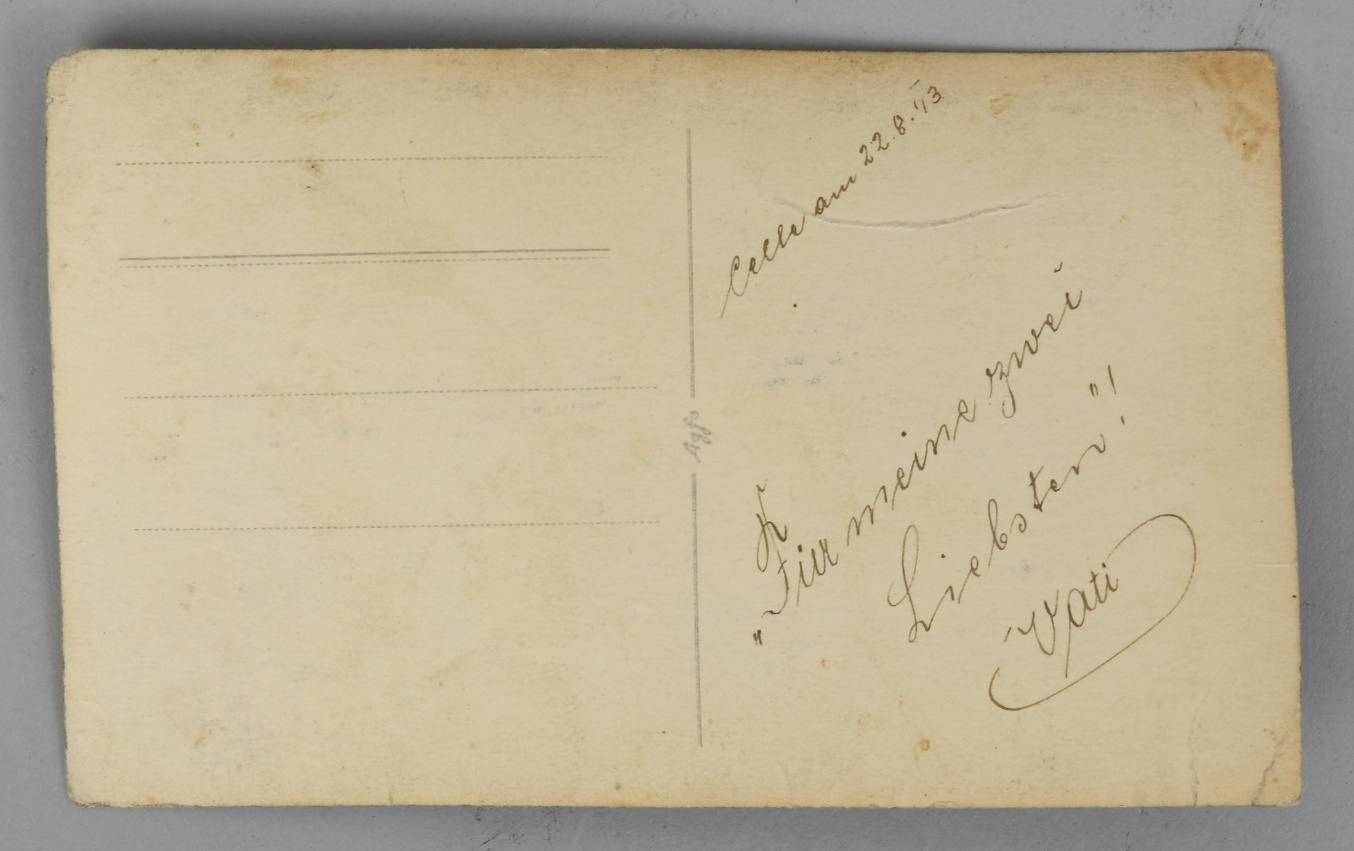 Celle am 22.8.43
„Für meine zwei
Liebsten"!
Vati
Agfa